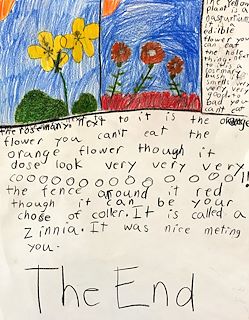 The yellow
plant is a
nasturtium
it is
edible
flower you
can eat
the hole
thing. next
to it is
a
rosemary
bush it
smells very
very
good. to
bad you
cant hole
the rosemary. Next to it is the orange
flower you can't eat the
orange flower though it
dose look very very very
cooooooooooooool!!
the fence around it red
though it can be your
chose of coller. It is called a
Zinnia. It was nice meting
you.
The End